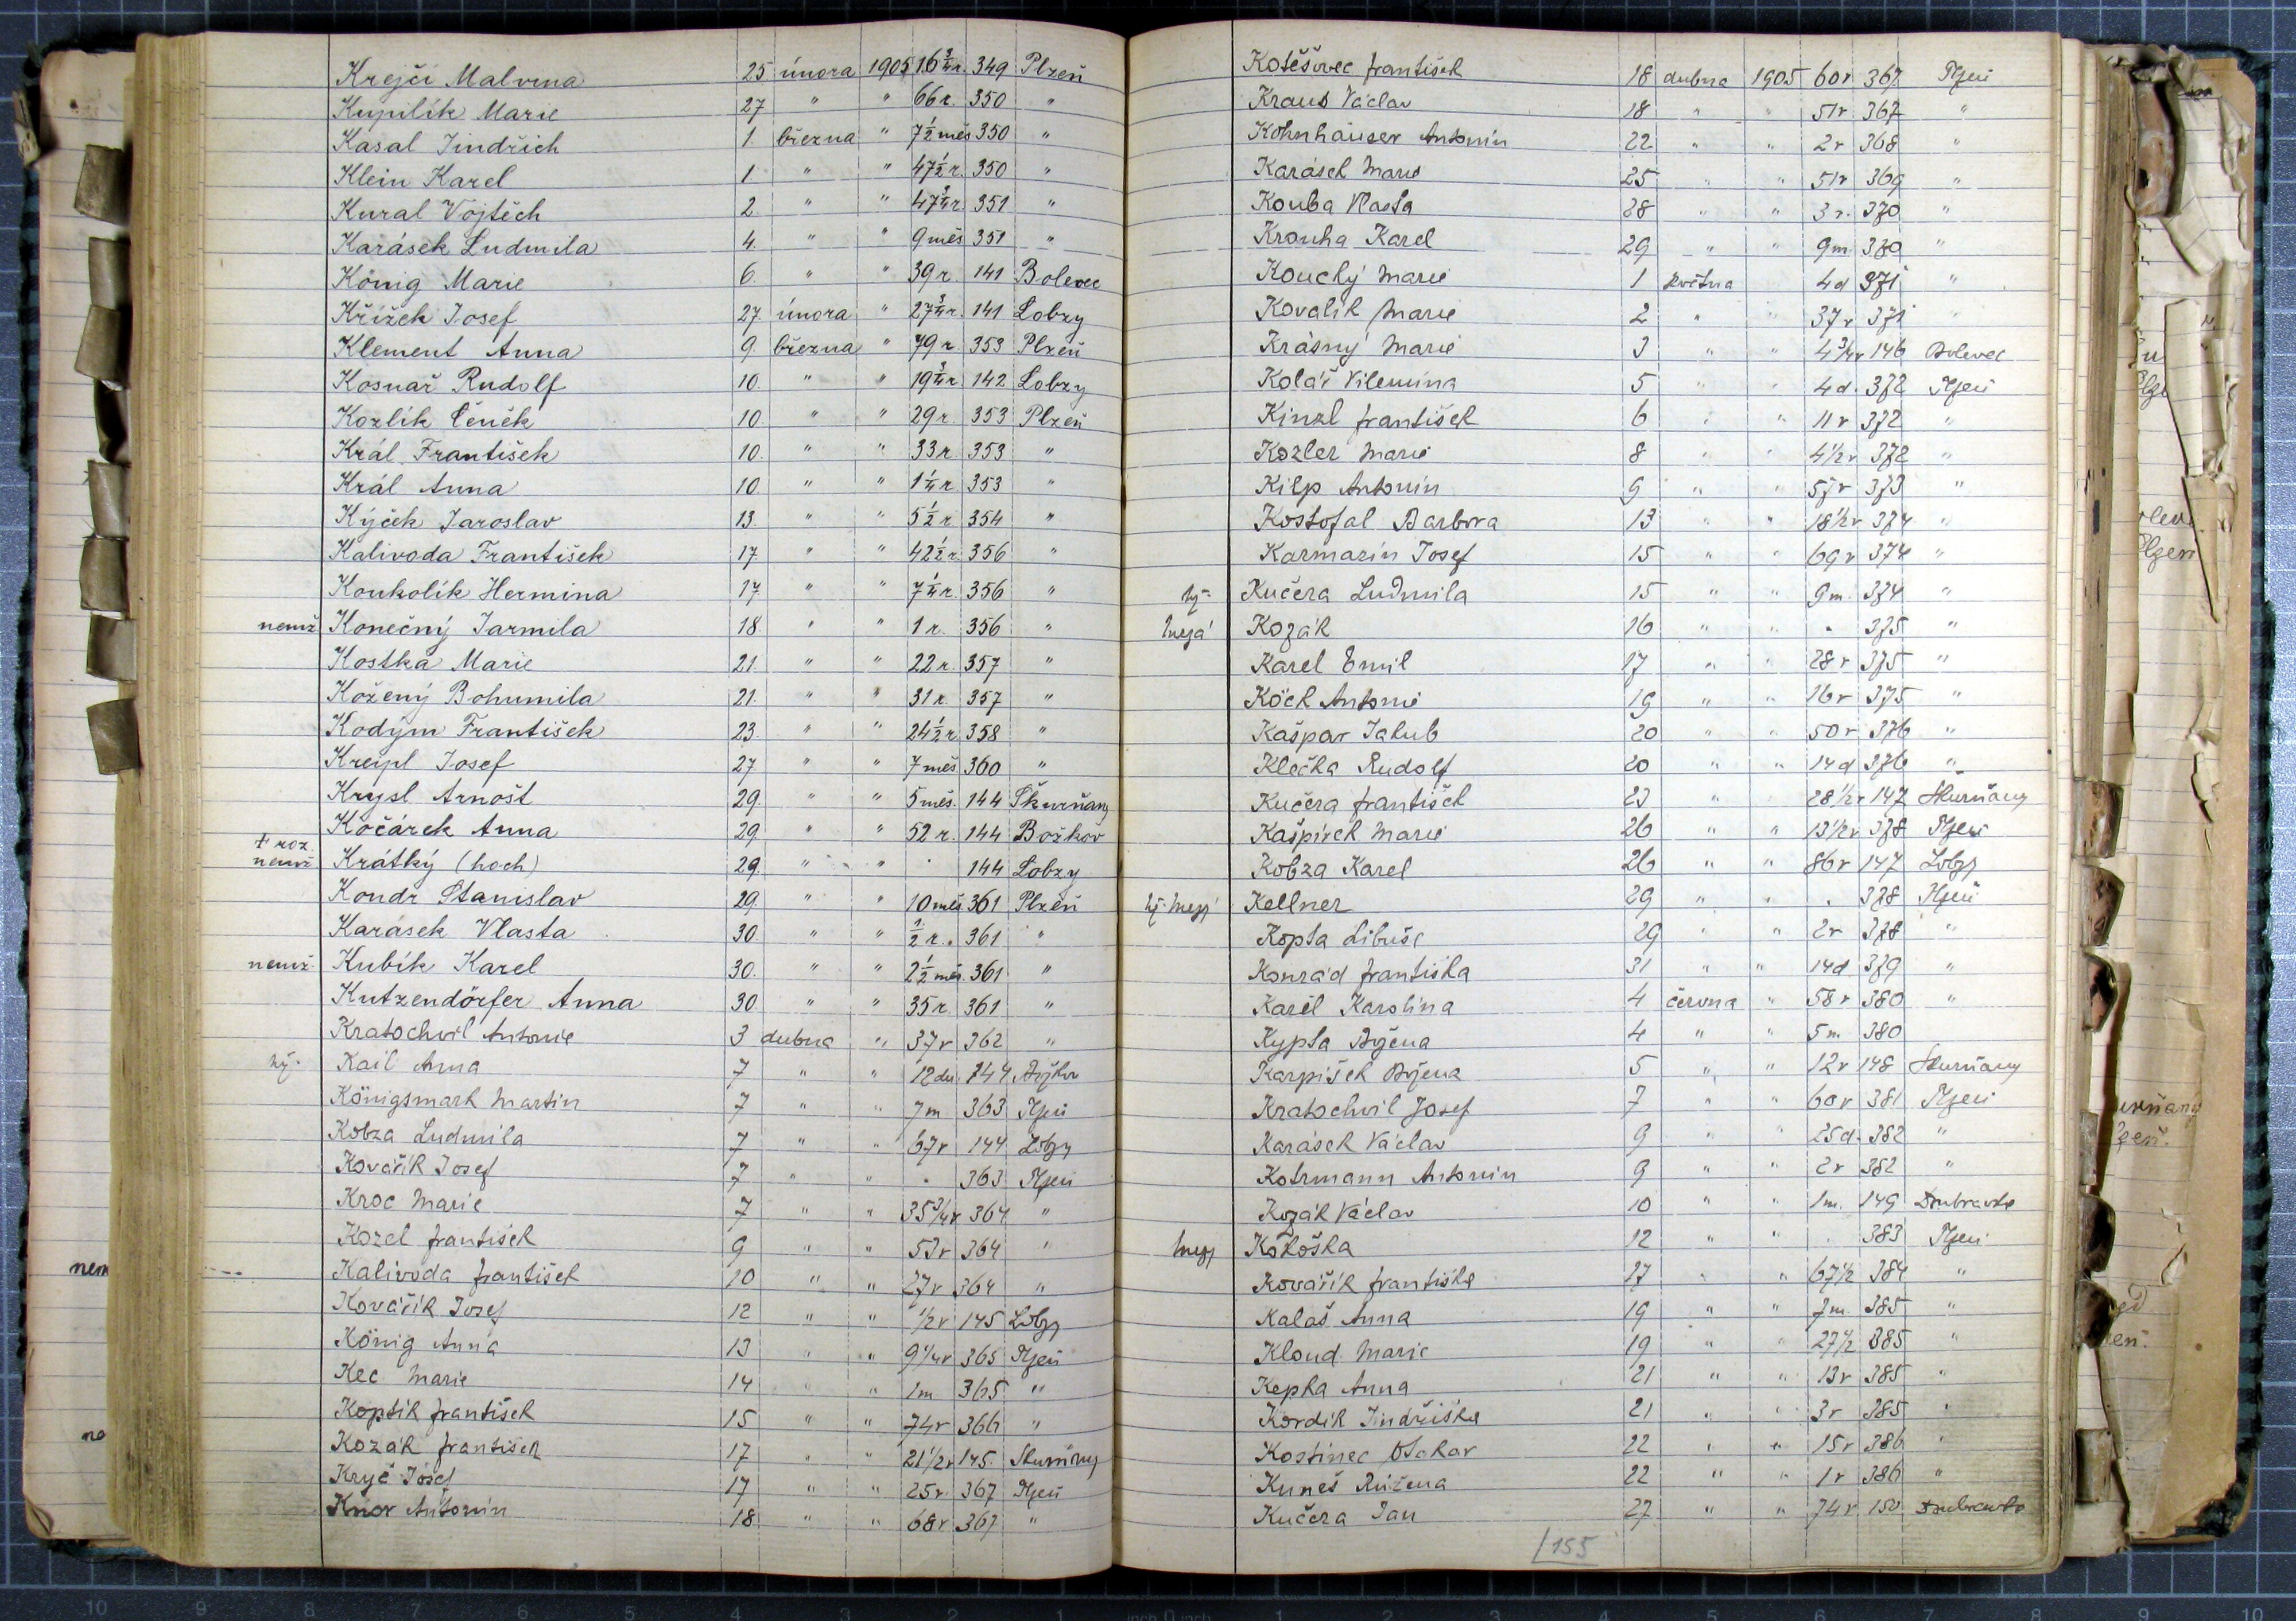 Krejčí Malvina 25 února 1905 16 3/4 r. 349 Plzeň
Kupilík Marie 27 " " 66 r. 350 "
Kasal Jindřich 1. března " 7 1/2 měs 350 "
Klein Karel 1. " " 47 1/2 r. 350 "
Kural Vojtěch 2. " " 47 3/4 r. 351 "
Karásek Ludmila 4. " " 9 měs 351 "
König Marie 6. " " 39 r. 141 Bolevec
Křížek Josef 27. února " 27 3/4 r. 141 Lobzy
Klement Anna 9. března " 79 r. 353 Plzeň
Kosnař Rudolf 10. " " 19 3/4 r. 142 Lobzy
Kozlík Čeněk 10. " " 29 r. 353 Plzeň
Král František 10. " " 33 r. 353 "
Král Anna 10. " " 1 1/4 r. 353 "
Kýček Jaroslav 13. " " 5 1/2 r. 354 "
Kalivoda František 17 " " 42 1/2 r. 356 "
Koukolík Hermina 17. " " 7 1/4 r. 356 "
nemž Konečný Jarmila 18. " " 1 r. 356 "
Kostka Marie 21. " " 22 r. 357 "
Kožený Bohumila 21. " " 31 r. 357 "
Kodým František 23. " " 24 1/2 r. 358 "
Kreipl Josef 27 " " 7 měs 360 "
Krysl Arnošt 29. " " 5 měs. 144 Škurňany
Kočárek Anna 29. " " 52 r. 144 Božkov
+ roz. nemž Krátký (hoch) 29. " " . 144 Lobzy
Kondr Stanislav 29. " " 10 měs 361 Plzeň
Karásek Vlasta 30. " " 1/2 r. 361 "
nemž. Kubík Karel 30. " " 2 1/2 měs. 361 "
Kutzendörfer Anna 30. " " 35 r. 361 "
Kratochvil Antonie 3 dubna " 37 r 362 "
Kail Anna 7 " " 12 dn. 144 Božkov
Königsmark Martin 7 " " 7 m 363 Plzeň
Kobza Ludmila 7 " " 67 r 144 Lobzy
Kovářík Josef 7 " " . 363 Plzeň
Kroc Marie 7 " " 35 3/4 r 364 "
Kozel František 9 " " 53 r 364 "
Kalivoda František 10 " " 27 r 364 "
Kovářík Josef 12 " " 1/2 r 145 Lobzy
König Anna 13 " " 9 1/4 r 365 Plzeň
Kec Marie 14 " " 1 m 365 "
Koptík František 15 " " 74 r 366 "
Kozák František 17 " " 21 1/2 r 145. Skurňany
Kryč Josef 17 " " 25 r. 367 Plzeň
Knor Antonín 18 " " 68 r 367 "
Kotěšovec František 18 dubna 1905 60 r 367. Plzeň
Kraus Václav 18 " " 51 r 367 "
Kohnhäuser Antonín 22 " " 2 r 368 "
Karásek Marie 25 " " 51 r 369 "
Kouba Vlasta 28 " " 3 r. 370 "
Krouha Karel 29 " " 9 m 370 "
Kouchý Marie 1 května 4 d 371 "
Kovalík Marie 2 " " 37 r 371 "
Krásný Marie 3 " " 4 3/4 r 146 Bolevec
Kolář Vilemína 5 " 4 d. 372 Plzeň
Kinzl František 6 " " 11 r 372 "
Kozler Marie 8 " " 4 1/2 r 372 "
Kilp Antonín 9 " " 57 r 373 "
Kostofal Barbora 13 " " 18 1/2 r 374 "
Karmarín Josef 15 " " 69 r 374 "
Kučera Ludmila 15 " " 9 m. 374 "
Kozák 16 " " " 375 "
Karel Emil 17 " " 28 r 375 "
Köck Antonie 19 " " 16 r 375 "
Kašpar Jakub 20 " " 50 r 376 "
Klečka Rudolf 20 " " 14 d 376 "
Kučera František 23 " " 28 1/2 r 147 Skurňany
Kašpírek Marie 26 " " 13 1/2 r 378 Plzeň
Kobza Karel 26 " " 86 r 147 Lobzy
Kellner 29 " " . 378 Plzeň
Kopta Libuše 29 " " 2 r 378 "
Konrád Františka 31 " " 14 d 379 "
Karel Karolina 4 června " 58 r 380 "
Kypta Božena 4 " " 5 m 380
Karpíšek Božena 5 " " 12 r 148 Skurňany
Kratochvil Josef 7 " " 60 r 381 Plzeň
Karásek Václav 9 " " 25 d. 382 "
Kotrmann Antonín 9 " " 2 r 382 "
Kozák Václav 10 " " 1 m. 149 Doubravka
Kokoška 12 " " . 383 Plzeň
Kovářík Františka 17 " " 67 1/2 384 "
Kalaš Anna 19 " " 7 m. 385 "
Kloud Marie 19 " " 27 1/2 385 "
Kepka Anna 21 " " 13 r 385 "
Kordík Jindřiška 21 " " 3 r 385 "
Kostinec Otakar 22 " " 15 r 386 "
Kuneš Růžena 22 " " 1 r 386 "
Kučera Jan 27 " " 74 r 150 Doubravka
155